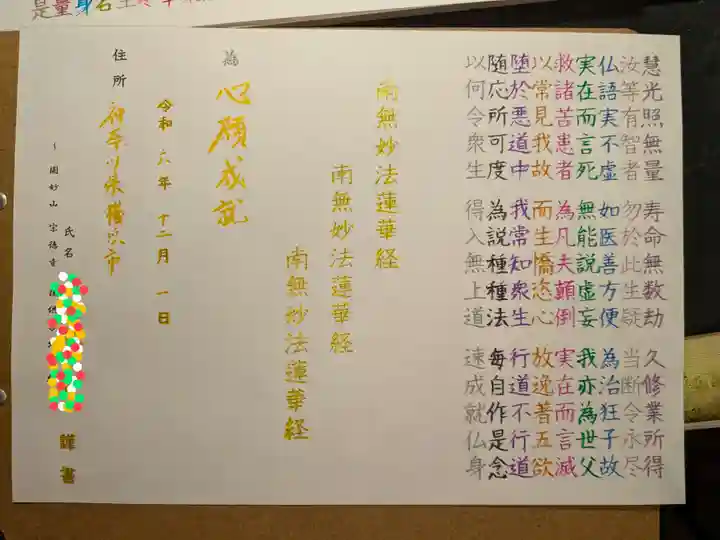 慧光照無量 寿命無数劫 久修業所得
汝等有智者 勿於此生疑 当断令永尽
仏語実不虚 如医善方便 為治狂子故
実在而言死 無能説虚妄 我亦為世父
救諸苦患者 為凡夫顛倒 実在而言滅
以常見我故 而生憍恣心 放逸著五欲
堕於悪道中 我常知衆生 行道不行道
随応所可度 為説種種法 毎自作是念
以何令衆生 得入無上道 速成就仏身
南無妙法蓮華経
南無妙法蓮華経
南無妙法蓮華経
為 心願成就
令和 六年 十二月 一日
住所 神奈川県横浜市
氏名 謹書
開妙山
是量身名